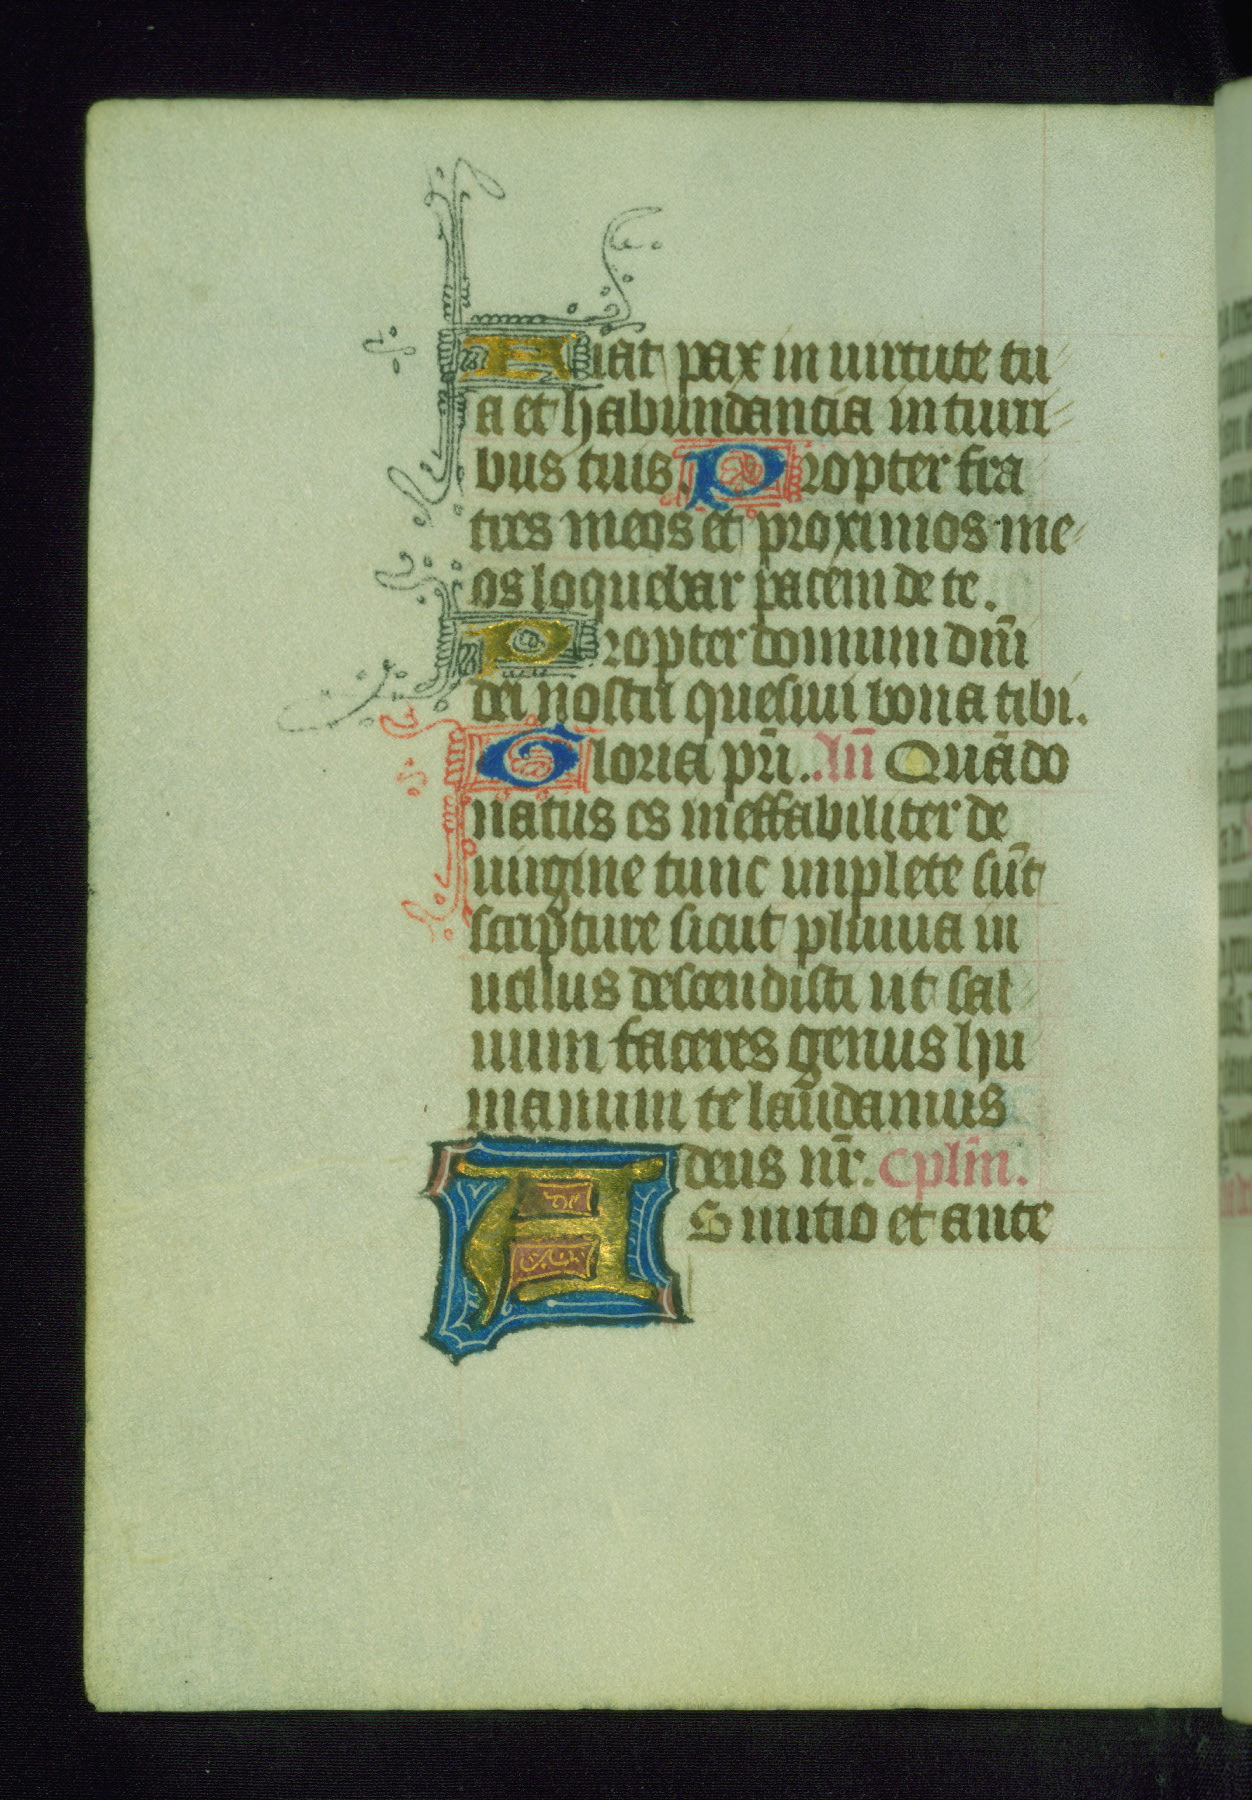 Fiat pax in uirtute tu
a et habundantia in turri
bus tuis. Propter fra
tres meos et proximos me
os loquebar pacem de te.
Propter domum dn̄i
dei nostri quesiui bona tibi.
Gloria pr̄i. An̄ Quādo
natus es ineffabiliter de
uirgine tunc implete sūt
scripture sicut pluuia in
uellus descendisti ut sal
uum faceres genus hu
manum te laudamus
deus nr̄. Cplīn.
AB initio et ante